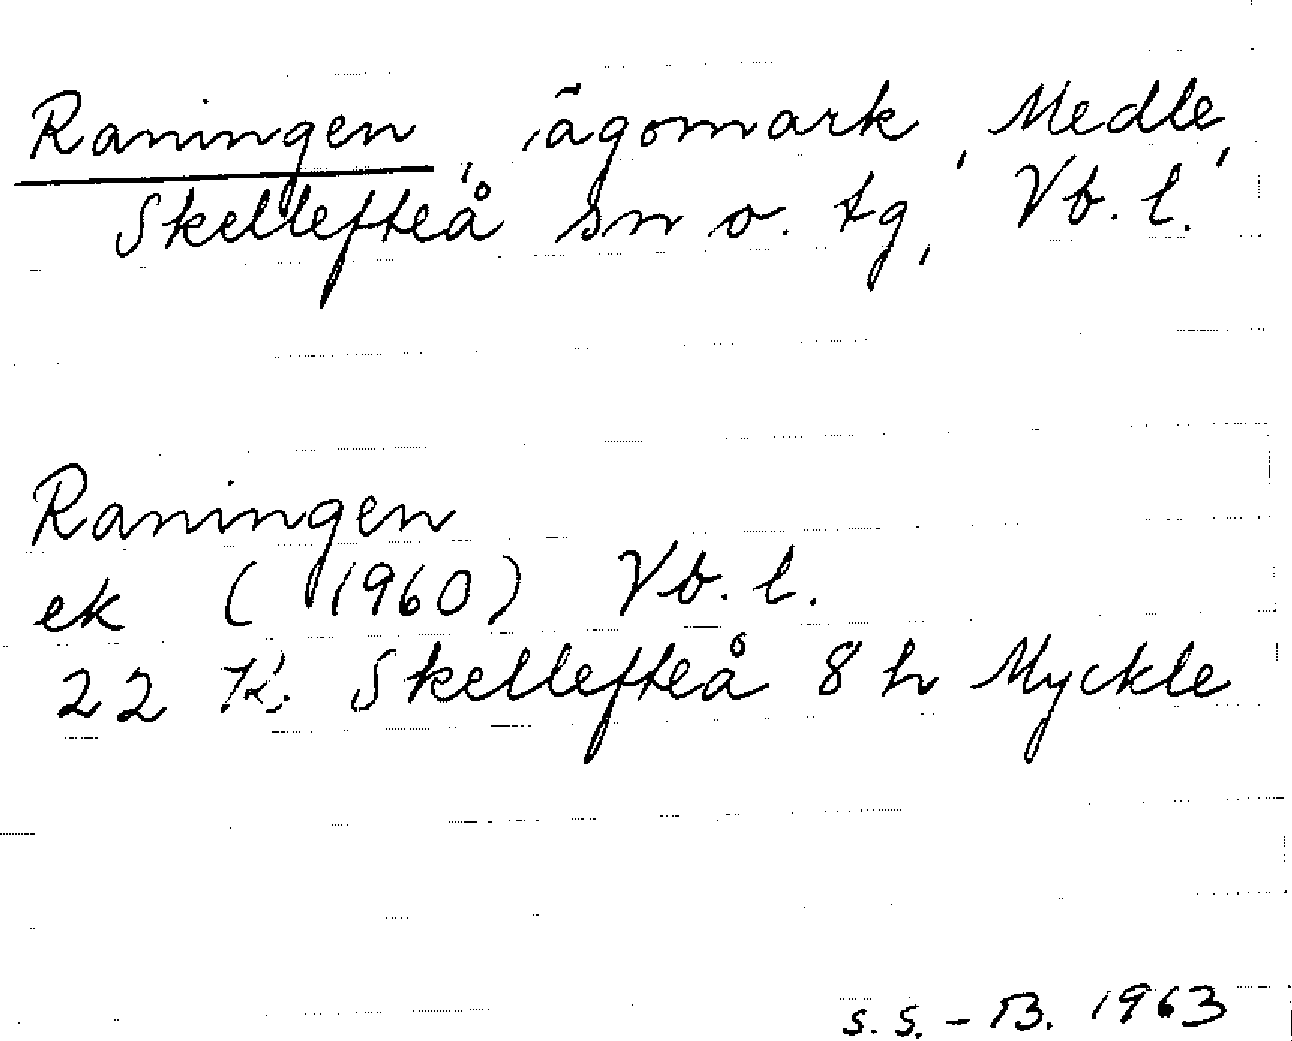 Raningen, ägomark, Medle,
Skellefteå sn o. tg, Vb. l.
Raningen
ek (1960) Vb. l.
22 K. Skellefteå 8 h Myckle
S. S. - B. 1963